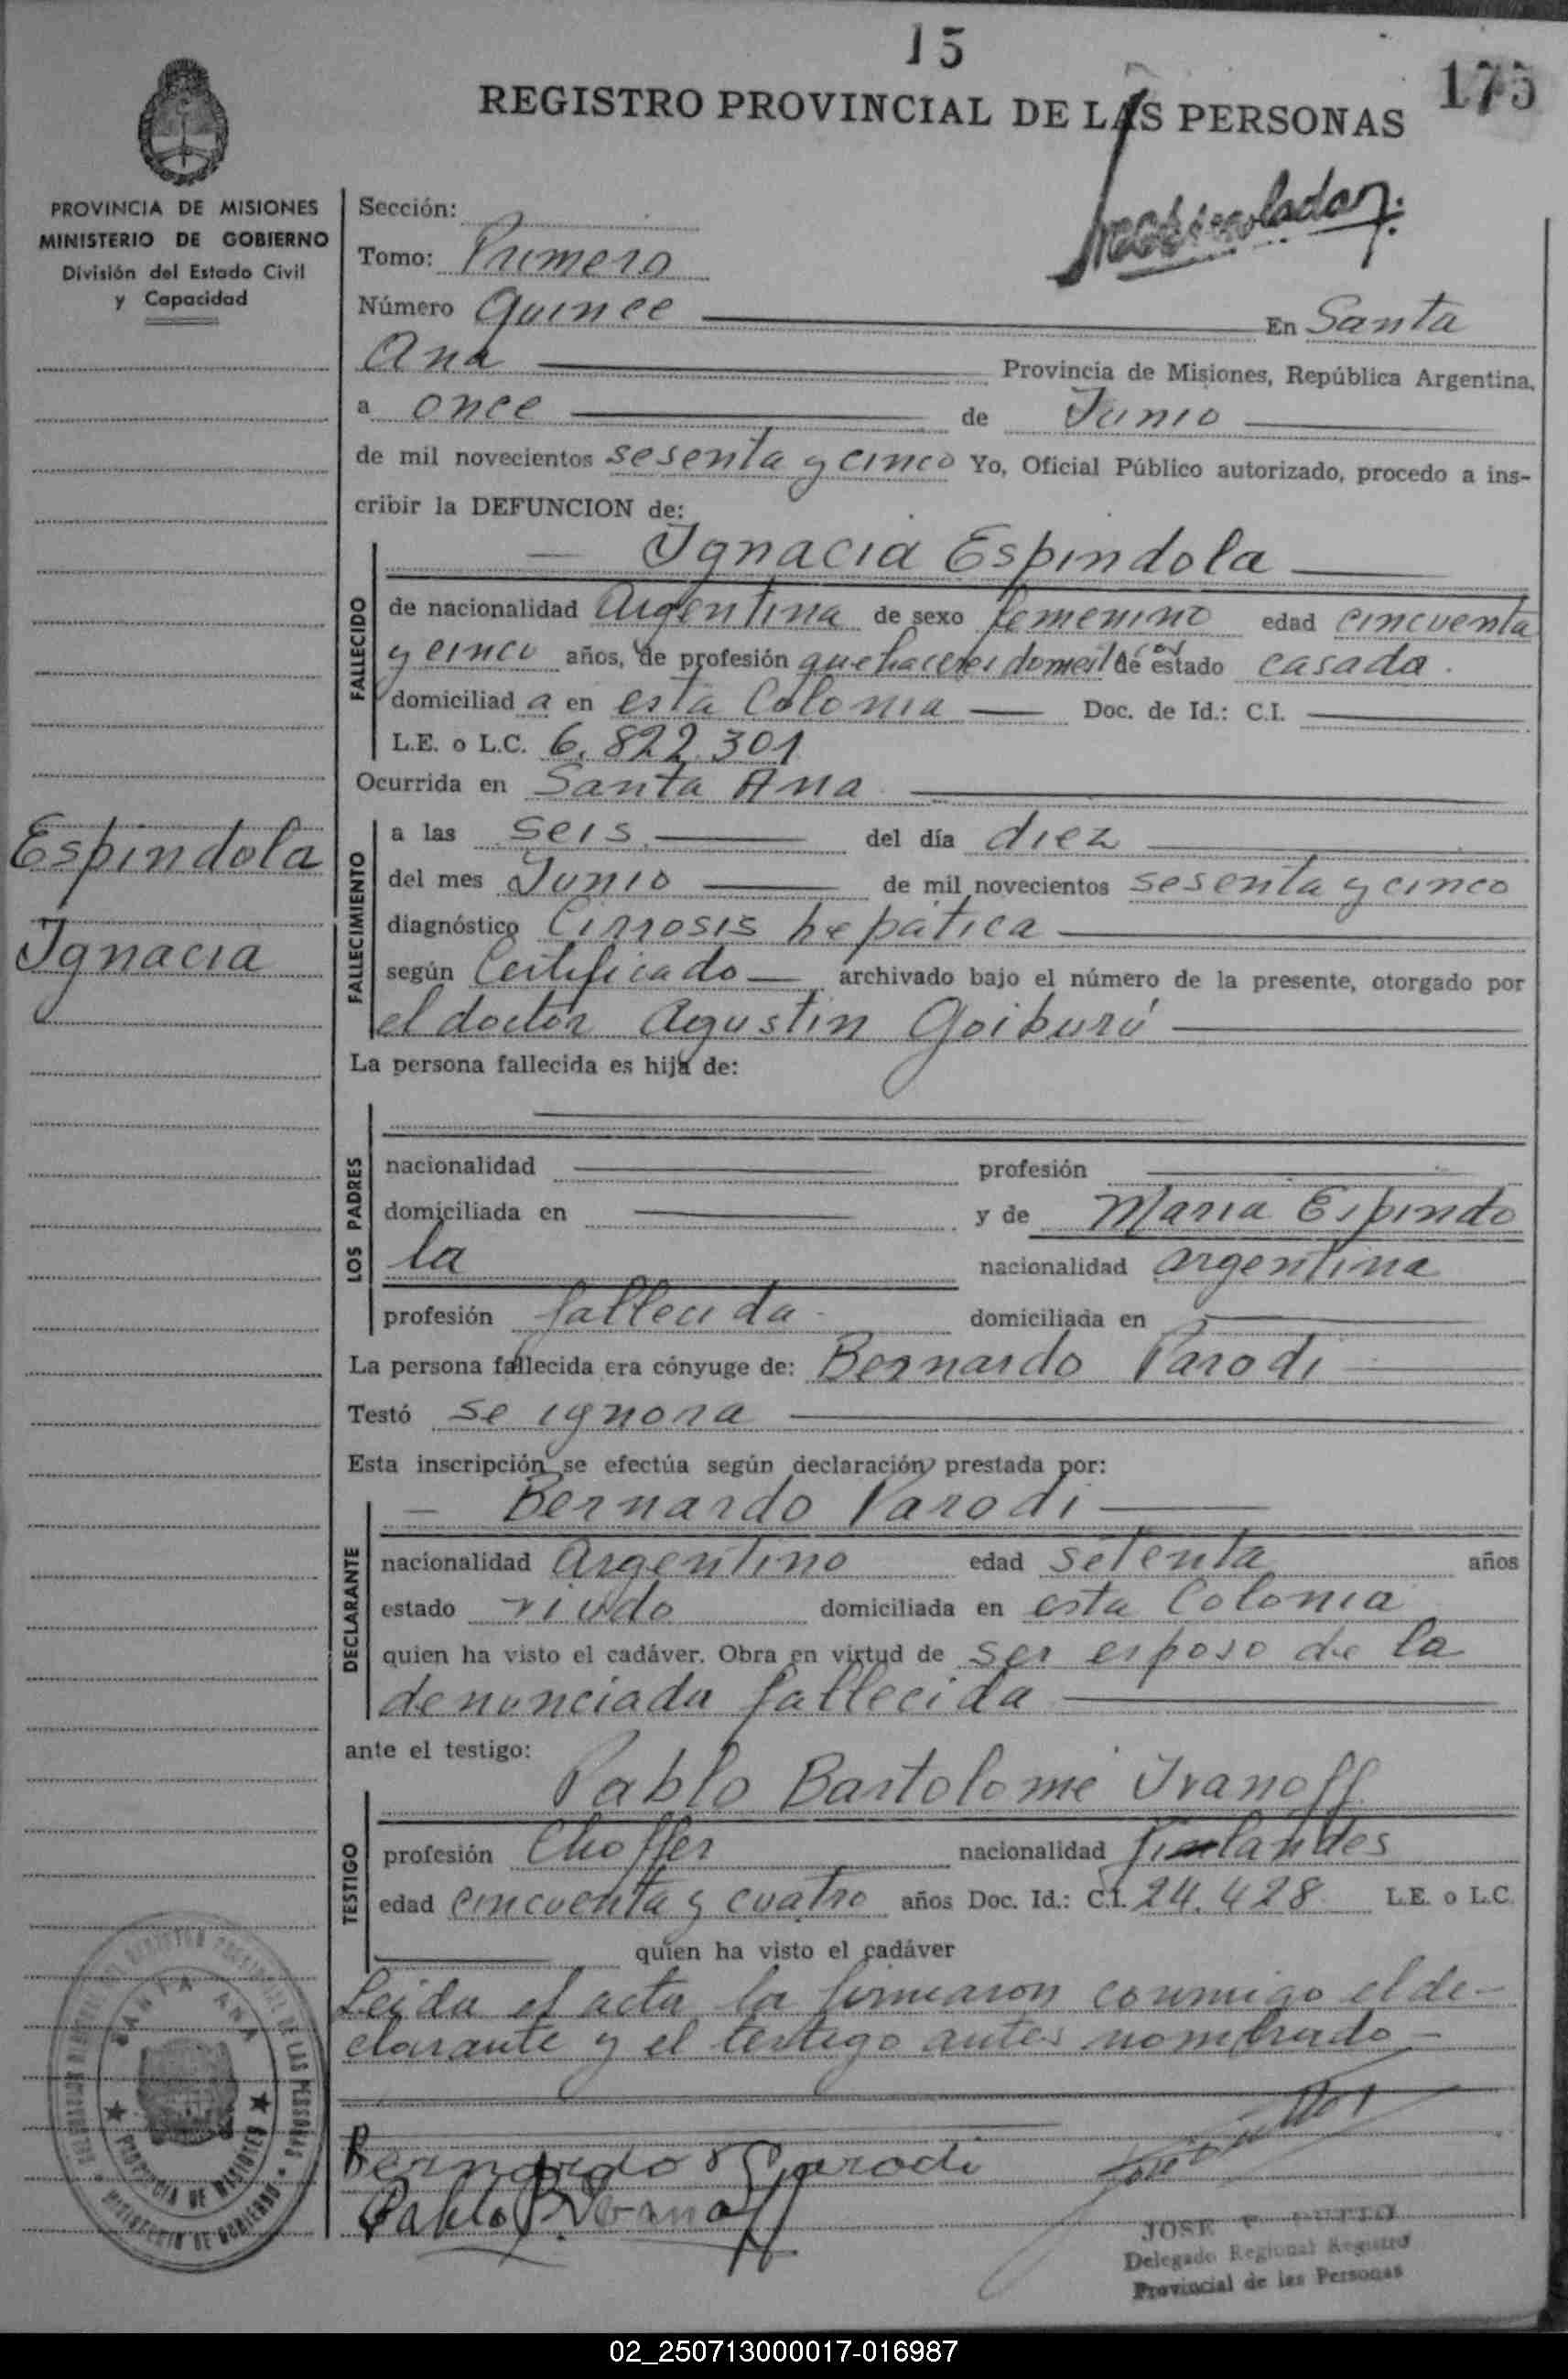 15
175
REGISTRO PROVINCIAL DE LAS PERSONAS
PROVINCIA DE MISIONES
MINISTERIO DE GOBIERNO
División del Estado Civil
y Capacidad
Sección:
Tomo: Primero
Número Quince En Santa
Ana Provincia de Misiones, República Argentina,
a once de Junio
de mil novecientos sesenta y cinco Yo, Oficial Público autorizado, procedo a ins-
cribir la DEFUNCION de:
Ignacia Espindola
FALLECIDO
de nacionalidad Argentina de sexo femenino edad cincuenta
y cinco años, de profesión quehaceres domesticos de estado casada.
domiciliad a en esta Colonia Doc. de Id.: C.I.
L.E. o L.C. 6.822.301
Ocurrida en Santa Ana
Espindola
Ignacia
FALLECIMIENTO
a las seis. del día diez
del mes Junio de mil novecientos sesenta y cinco
diagnóstico Cirrosis hepática
según Certificado archivado bajo el número de la presente, otorgado por
el doctor Agustin Goiburú
La persona fallecida es hija de:
LOS PADRES
nacionalidad profesión
domiciliada en y de Maria Espindo
la nacionalidad argentina
profesión fallecida domiciliada en
La persona fallecida era cónyuge de: Bernardo Parodi
Testó se ignora
Esta inscripción se efectúa según declaración prestada por:
Bernardo Parodi
DECLARANTE
nacionalidad Argentino edad setenta años
estado viudo domiciliada en esta Colonia
quien ha visto el cadáver. Obra en virtud de ser esposo de la
denunciada fallecida
ante el testigo:
Pablo Bartolomé Ivanoff
TESTIGO
profesión Choffer nacionalidad finlandes
edad cincuenta y cuatro años Doc. Id.: C.I. 24.428 L.E. o L.C.
quien ha visto el cadáver
Leida el acta la firmaron conmigo el de-
clarante y el testigo antes nombrado
Bernardo Parodi
Pablo B. Ivanoff
JOSE
Delegado Regional Registro
Provincial de las Personas
SANTA ANA
PROVINCIA DE MISIONES
MINISTERIO DE GOBIERNO
02_250713000017-016987